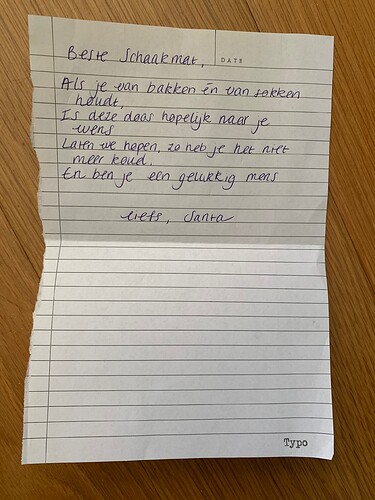 Beste Schaakmat,
DATE
Als je van bakken én van tokken
houdt,
Is deze doos hopelijk naar je
wens
Laten we hopen, zo heb je het niet
meer koud.
En ben je een gelukkig mens
liefs, Santa
Typo